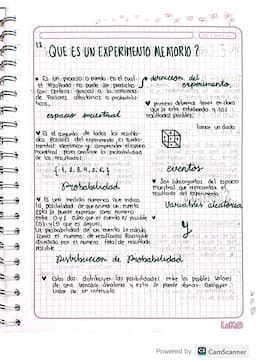 12
¿QUE ES UN EXPERIMENTO ALEATORIO?
♥ Es un proceso o evento en el cual
el resultado no puede ser predicho
con certeza debido a la
factores aleatorios o probabilis-
ticos.
espacio muestral
♥ Es el conjunto de todos los resulta-
dos posibles del experimento, es funda-
mental identificar y comprender el espacio
muestral para analizar la probabilidad
de los resultados.
{1, 2, 3, 4, 5, 6}
Probabilidad
♥ Es una medida numerica que indica
la posibilidad de que ocurra un evento
esta se puede expresar como numero
entre 0 y 1 donde 0 que el evento es imposible
y 1 que es seguro.
La probabilidad de un evento
como el numero de resultados favorable
dividido por el numero total de resultado
posible
definicion del
experimento
♥ primero debemos tener en claro
que se esta estudiando y los
resultados posibles.
lanzar un dado
eventos
♥ Son subconjuntos del espacio
muestral que representan el
resultado del experimento
Variables aleatorias
y
Distribucion de Probabilidad
♥ distribuyen las posibilidades entre los posibles valores
de una variable aleatoria y esta se puede tomar cualquier
valor de un intervalo.
Powered by CS CamScanner